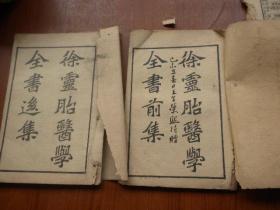 徐靈胎醫學
全書前集
徐靈胎醫學
全書後集